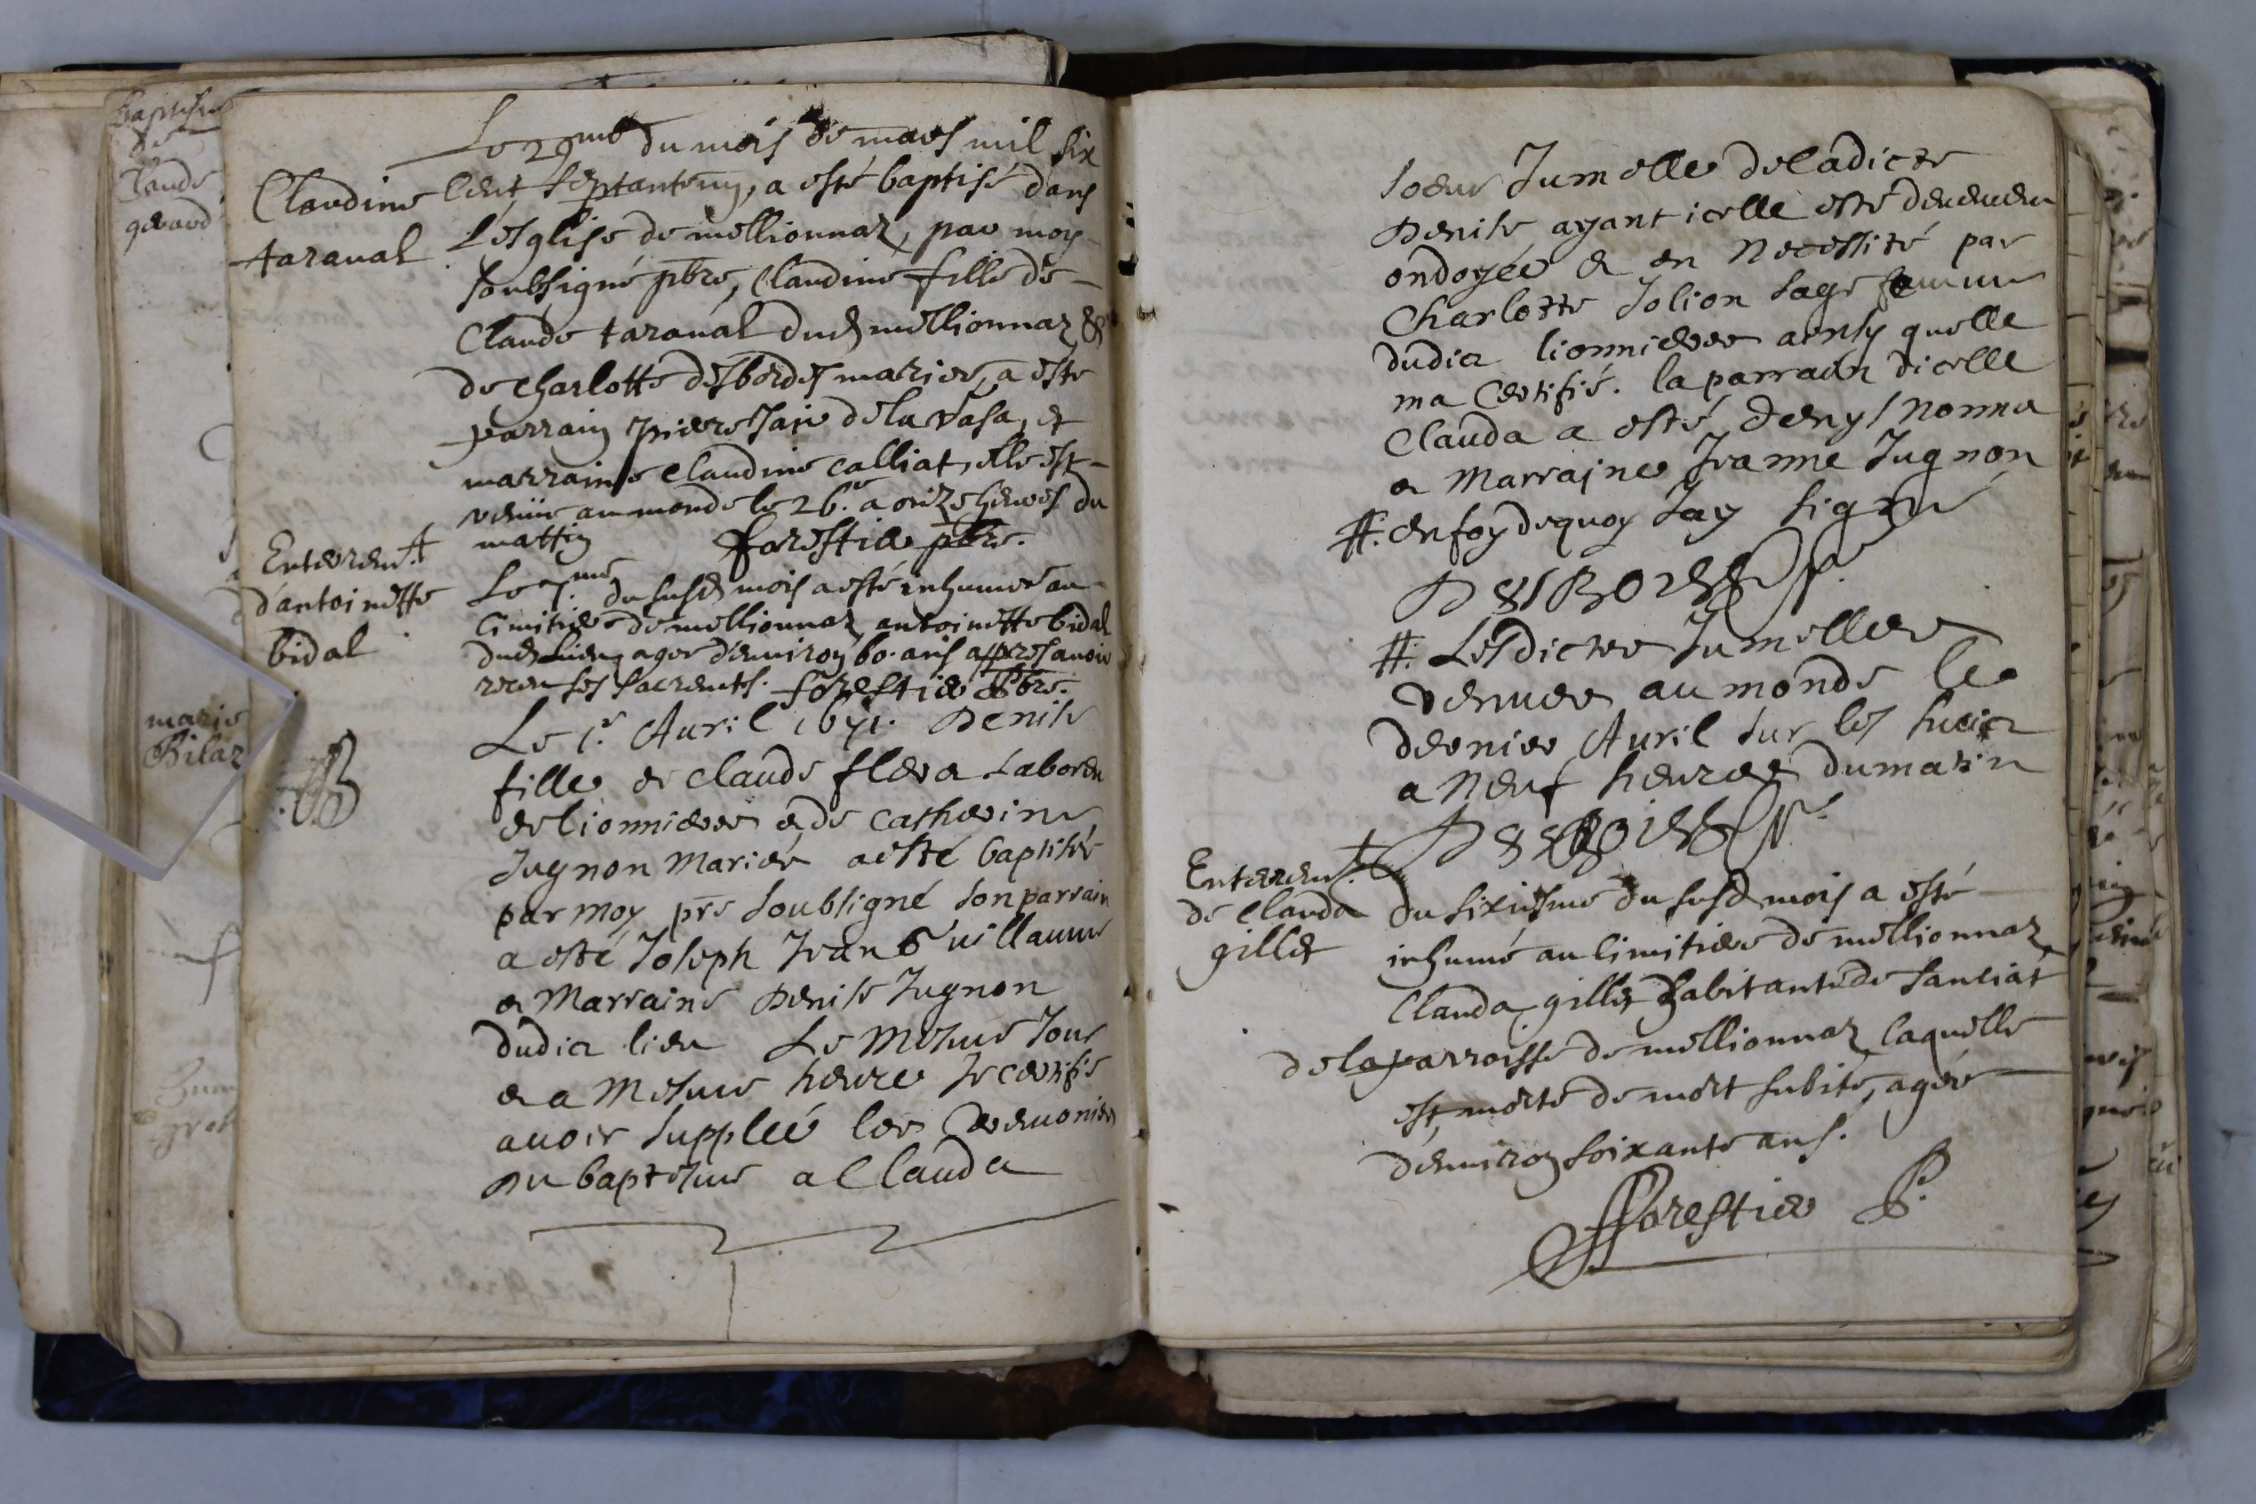 Baptisme
de
Claude
gerard
marie
Bilaz
Claudine
taraual
Le 29me du mois de mars mil six
Cent septanteung, a esté baptisé dans
L'esglise de mellionnaz, par moy
soubsigné pbre, Claudine fille de
Claude taraual dud mellionnaz &
de charlotte desbordes mariez, a este
parrain pierre Jaÿe de la Vasa, et
marraine Claudine Calliat, elle est
venüe au monde le 26e a onze heures du
mattin forestier pbre.
Enterremt
d'antoinette
bidal
Le 7.me du susd mois a esté inhumee au
Cimitiere de mellionnaz antoinette bidal
dud Lieu agee d'enuiron 60. ans appres auoir
receu ses sacrements. forestier Pbre.
B
Le 1.r Auril 1671. Denise
fille de Claude Laboreu
de lionnieres & de Catherine
Jugnon Mariés a esté baptisée
par moy pre soubsigné son parrain
a esté Joseph Jean Guillaume
& Marraine Denise Jugnon
dudict lieu Le Mesme Jour
& a Mesme heure Je certifie
auoir supplée les Ceremonies
Du baptesme a Clauda
soeur Jumelle de ladicte
Denise ayant icelle esté
ondoyée & en Necessité par
Charlotte Jolion sage femme
dudict lionnieres ainsy quelle
ma Certifié. la parrain dicelle
Clauda a esté Denys nonna
& Marraine Jeanne Jugnon
#. en foy dequoy Jay signé
#: Lesdictes Jumelles
venues au monde le
dernier Auril sur les huict
a Neuf heures du matin
Enterremt.
de Clauda
gillet
Du sixiesme du susd mois a esté
inhumé au Cimitiere de mellionnaz
Clauda gillet habitante de Sanciat
de la parroisse de mellionnaz laquelle
est morte de mort subite, agée
d'enuiron soixante ans.
fforestier P.